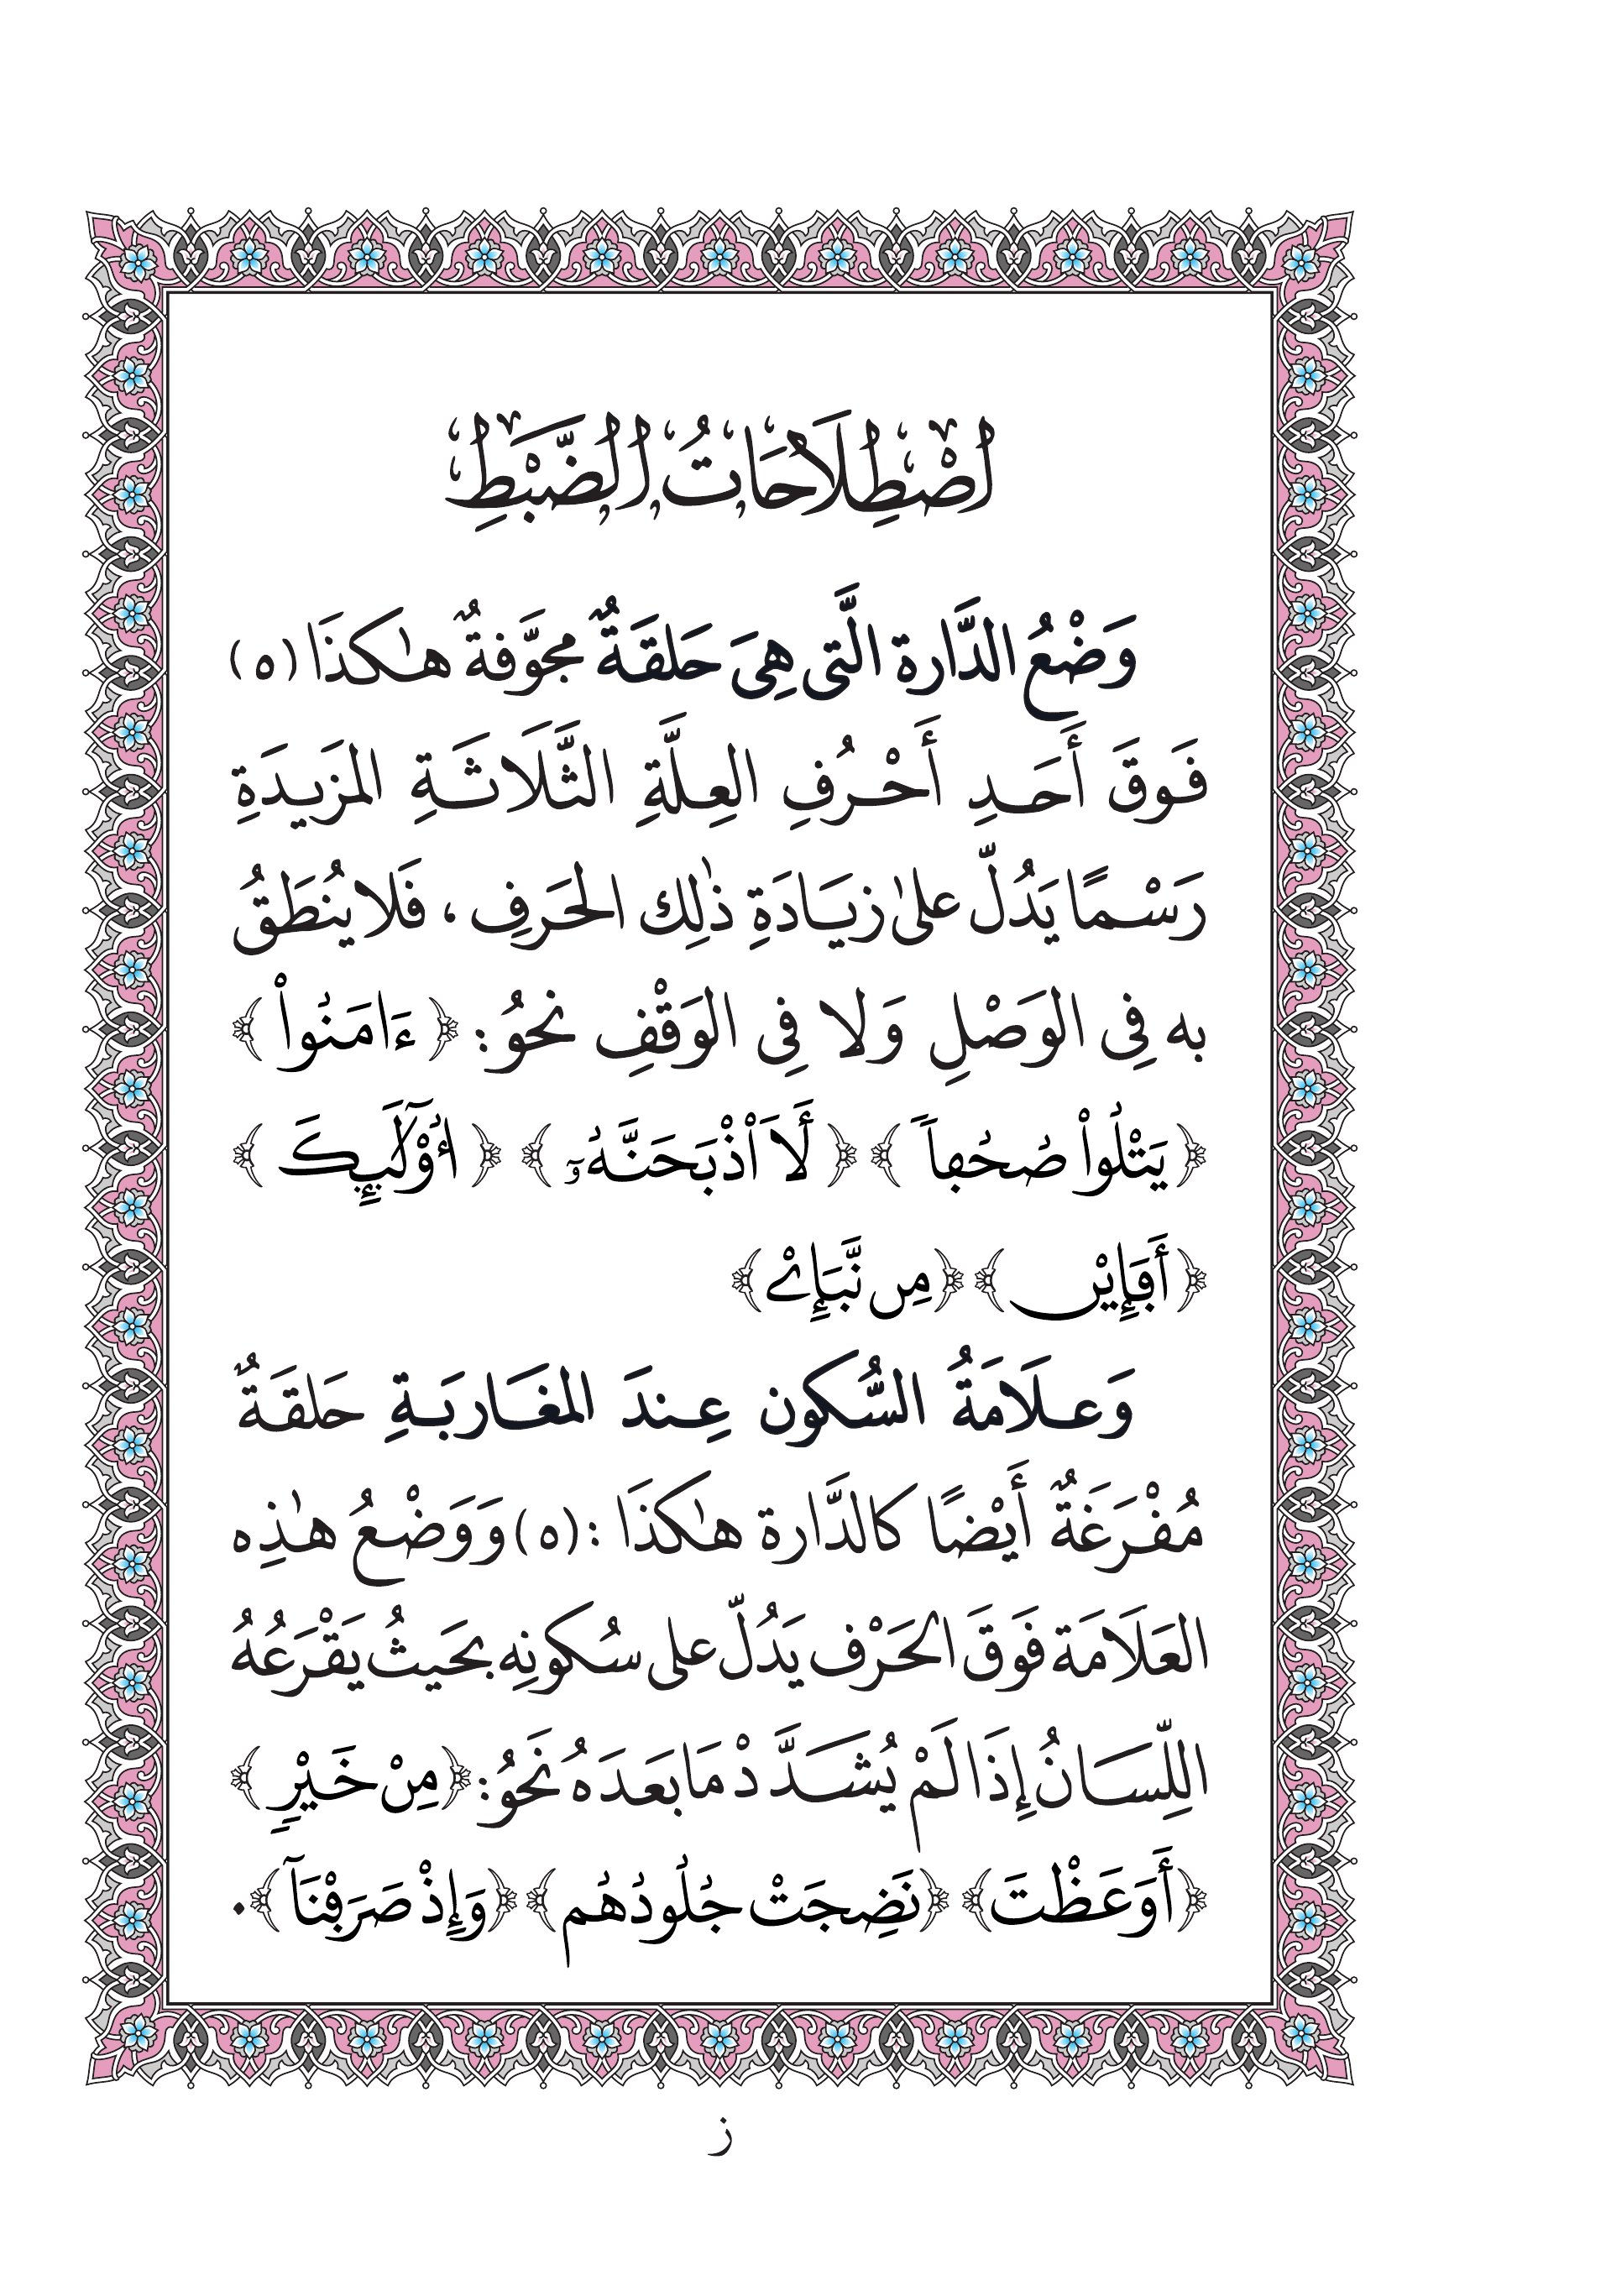 اصْطِلَاحَاتُ الضَّبْطِ
وَضْعُ الدَّارة الَّتى هِىَ حَلقَةٌ مجَوَّفةٌ هٰكذَا (ه)
فَوقَ أَحَدِ أَحْرُفِ العِلَّةِ الثَّلَاثَةِ المزَيدَةِ
رَسْمًا يَدُلّ علىٰ زيَادَةِ ذٰلِك الحَرفِ ، فَلا يُنطَقُ
به فِى الوَصْلِ وَلا فِى الوَقْفِ نحوُ: ﴿ءَامَنُواْ﴾
﴿يَتْلُواْ صُحُفاٗ﴾ ﴿لَأَاْذْبَحَنَّهُۥٓ﴾ ﴿أُوْلَٰٓئِكَ﴾
﴿أَفَإِيْن﴾ ﴿مِن نَّبَإِےْ﴾
وَعلَامَةُ السُّكون عِندَ المغَاربَةِ حَلقَةٌ
مُفْرَغَةٌ أَيْضًا كالدَّارة هٰكذَا : (ه) وَوَضْعُ هٰذِه
العَلَامَة فَوَقَ الحَرْف يَدُلّ على سُكونِه بحَيثُ يَقْرَعُهُ
اللِّسَانُ إِذَا لَمْ يُشَدَّدْ مَا بَعدَهُ نَحوُ: ﴿مِنْ خَيْرٖ﴾
﴿أَوَعَظْتَ﴾ ﴿نَضِجَتْ جُلُودُهُم﴾ ﴿وَإِذْ صَرَفْنَآ﴾.
ز